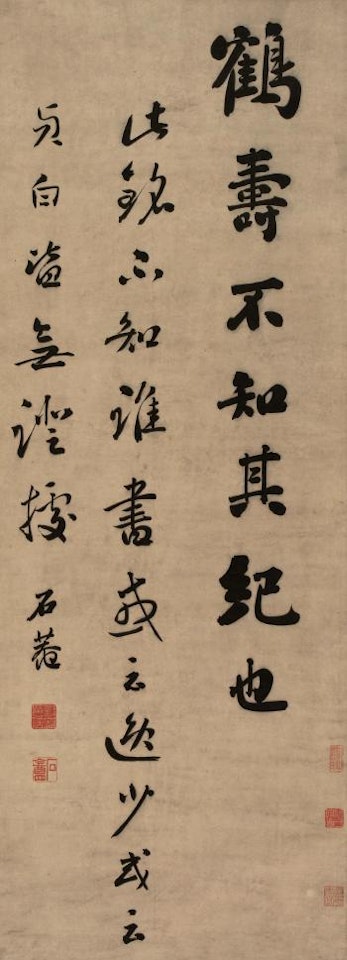 鶴壽不知其紀也
此銘不知誰書或云逸少或云
貞白皆無證據 石菴